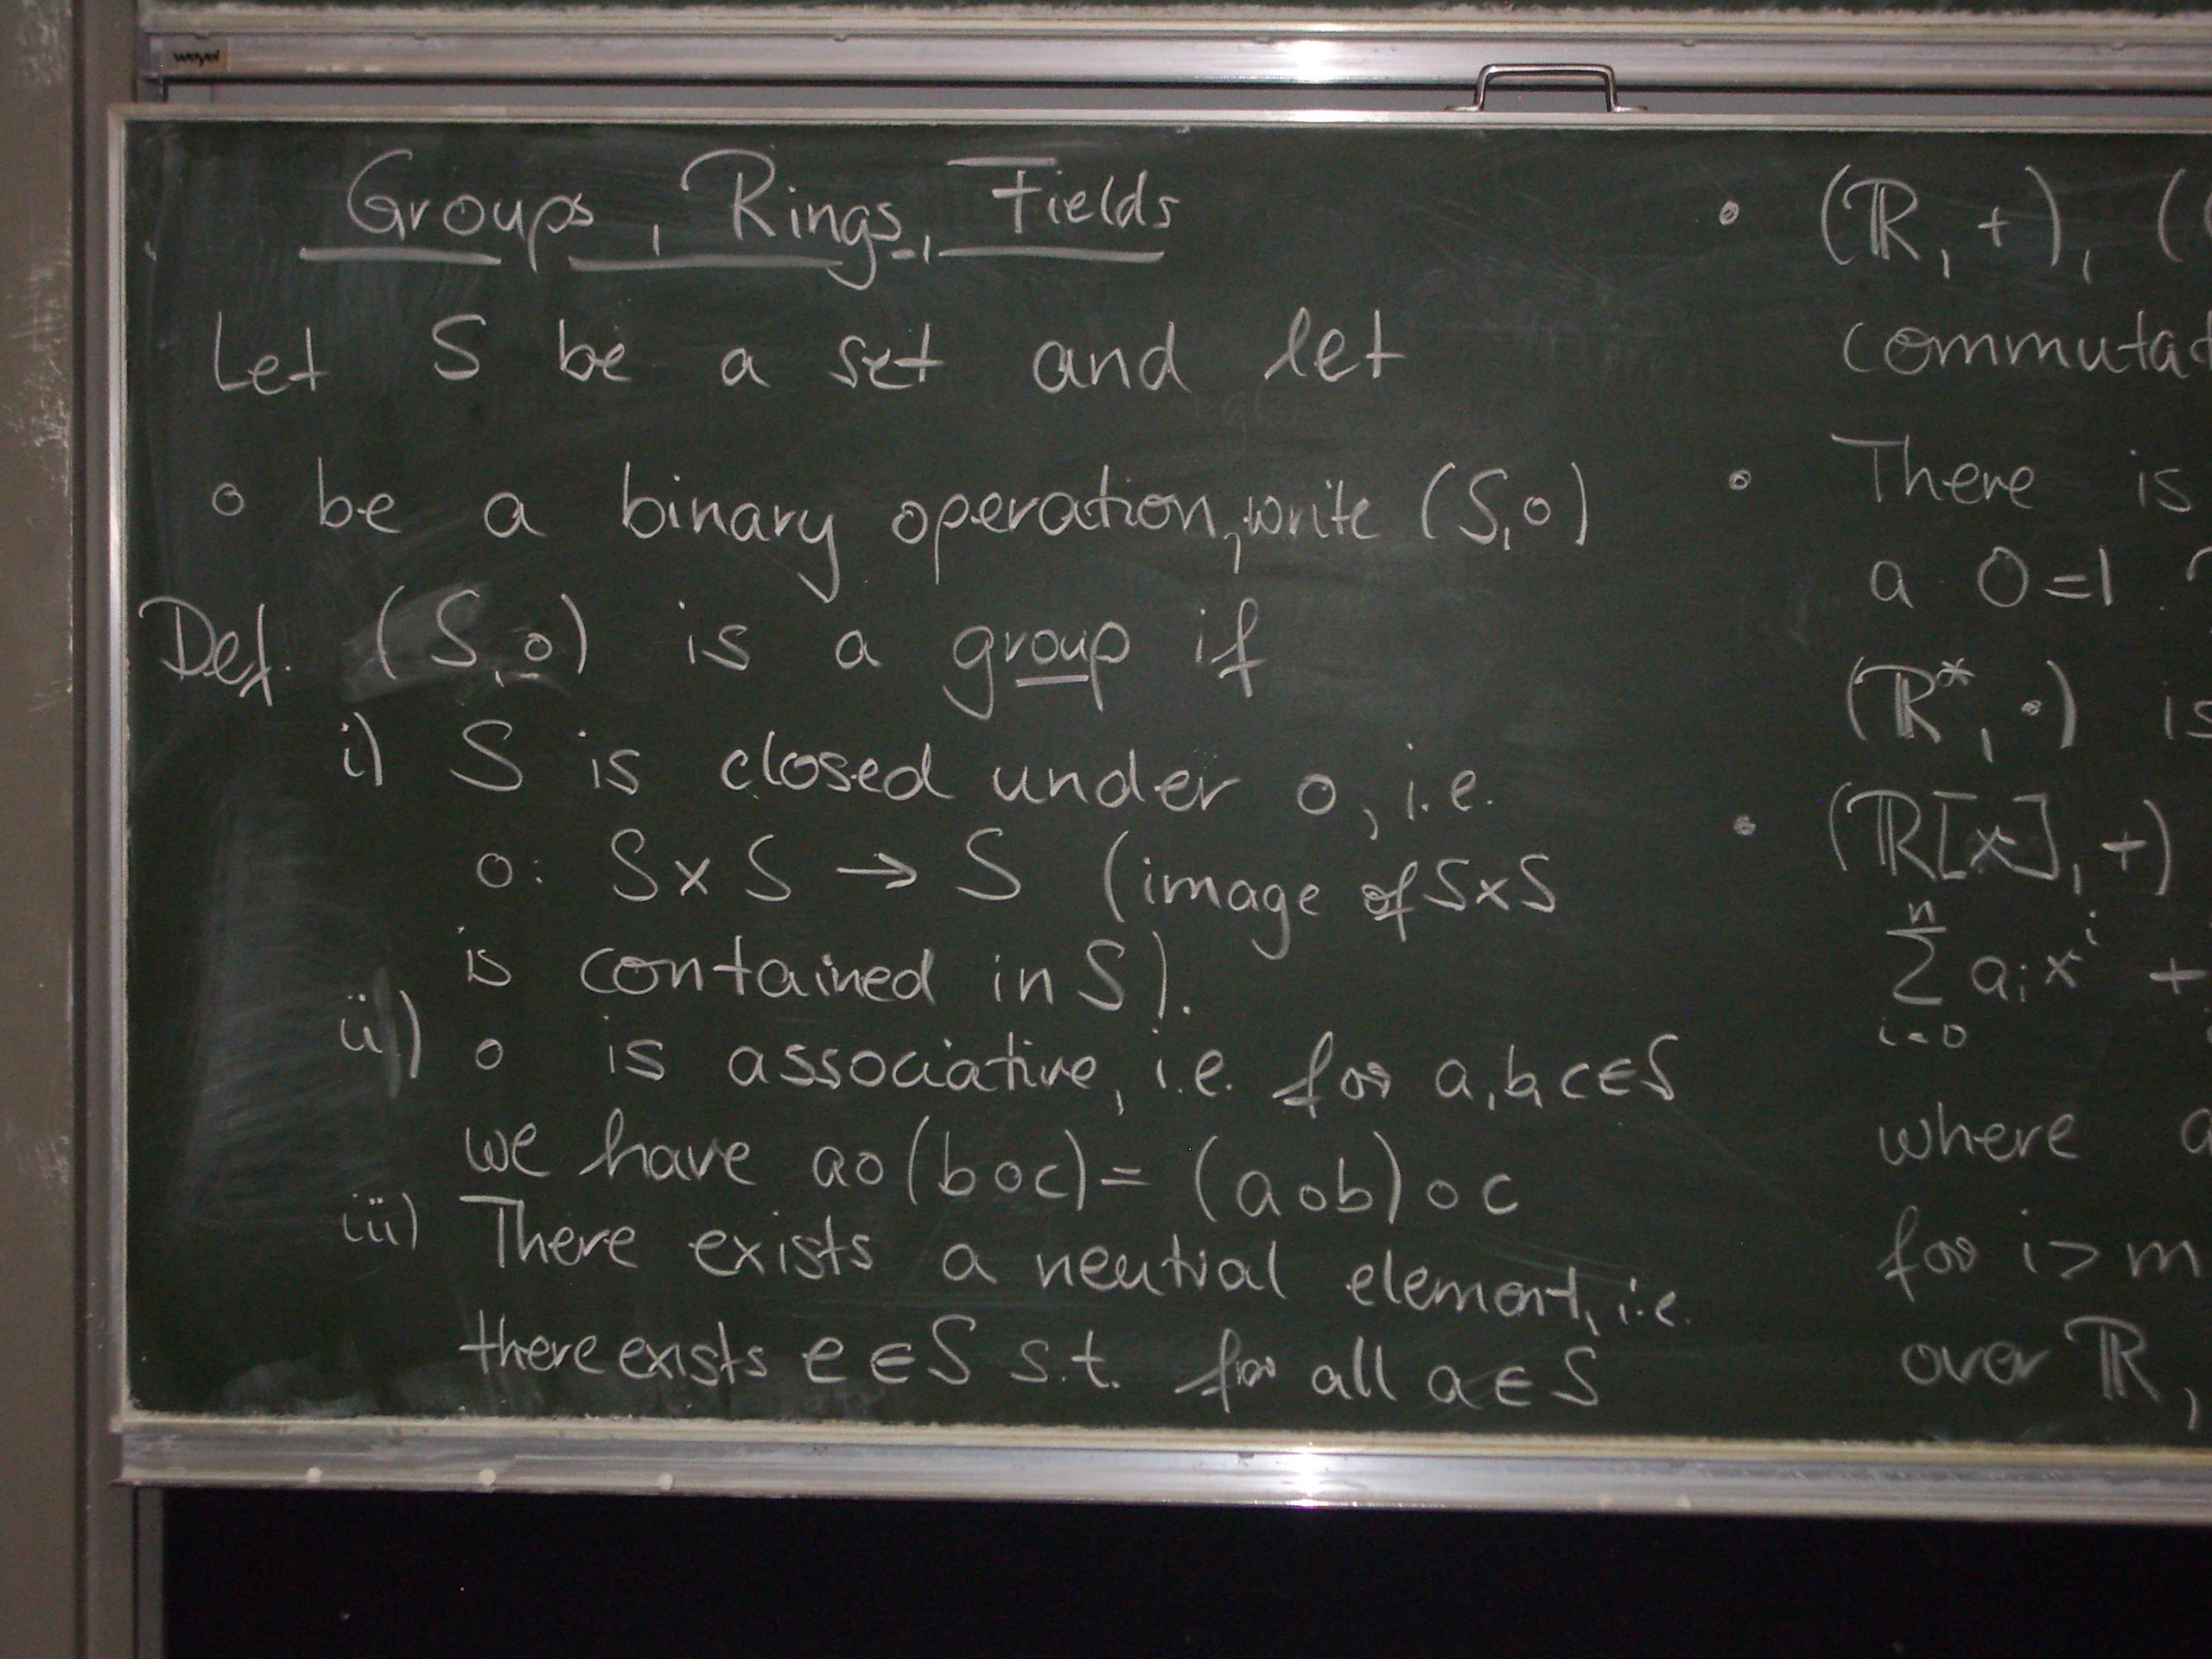 weyel
Groups, Rings, Fields
Let S be a set and let
∘ be a binary operation, write (S,∘)
Def. (S,∘) is a group if
i) S is closed under ∘, i.e.
∘: S×S → S (image of S×S
is contained in S).
ii) ∘ is associative, i.e. for a,b,c∈S
we have a∘(b∘c)=(a∘b)∘c
iii) There exists a neutral element, i.e.
there exists e∈S s.t. for all a∈S
• (ℝ,+), (
commutat
• There is
a 0=1
(ℝ*,·) is
• (ℝ[x],+)
n
∑ aᵢxⁱ +
i=0
where a
for i>m
over ℝ,